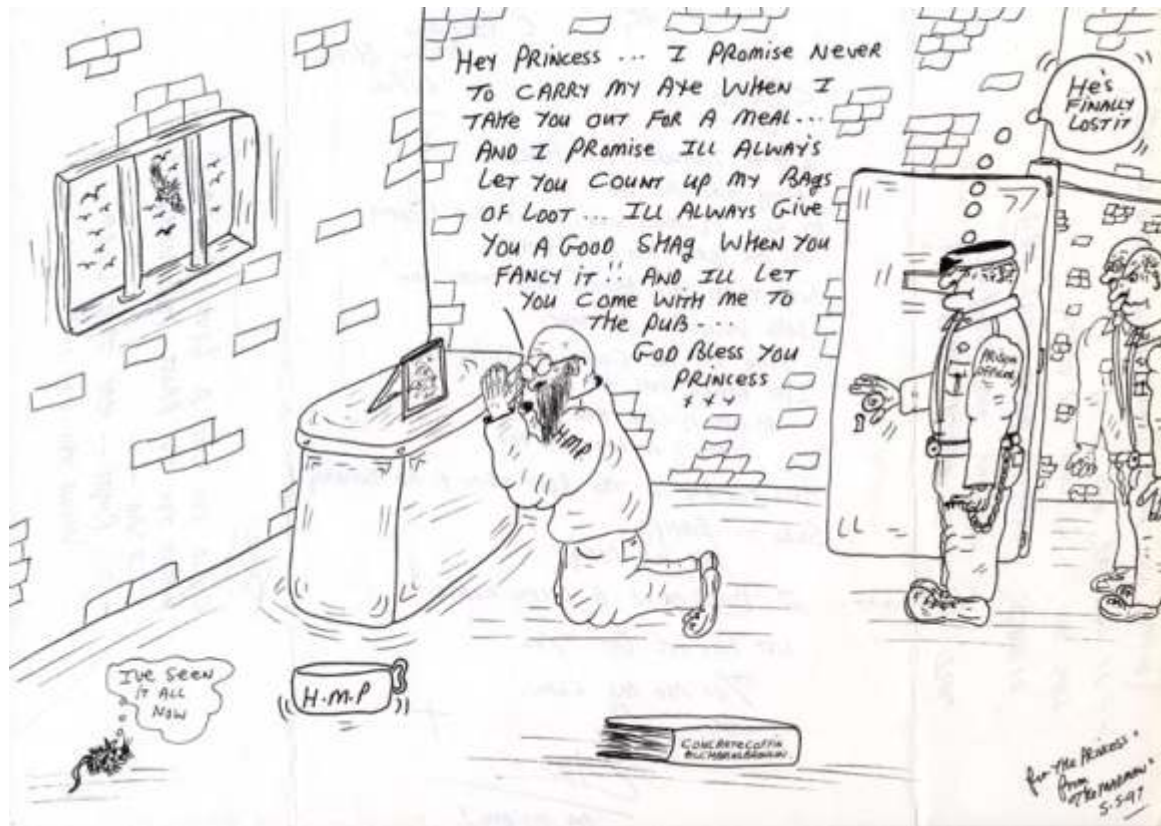 Hey PRINCESS ... I PROMISE NEVER
TO CARRY MY AXE WHEN I
TAKE YOU OUT FOR A MEAL...
AND I PROMISE ILL ALWAYS
LET YOU COUNT UP MY BAGS
OF LOOT ... ILL ALWAYS GIVE
YOU A GOOD SHAG WHEN YOU
FANCY IT!! AND ILL LET
YOU COME WITH ME TO
THE PUB ...
GOD BLESS YOU
PRINCESS
x x x
He's
FINALLY
LOST IT
PRISON
OFFICER
HMP
I'VE SEEN
IT ALL
NOW
H.M.P
CONCRETE COFFIN
for THE PRINCESS"
from
"THE MADMAN"
5.5.97